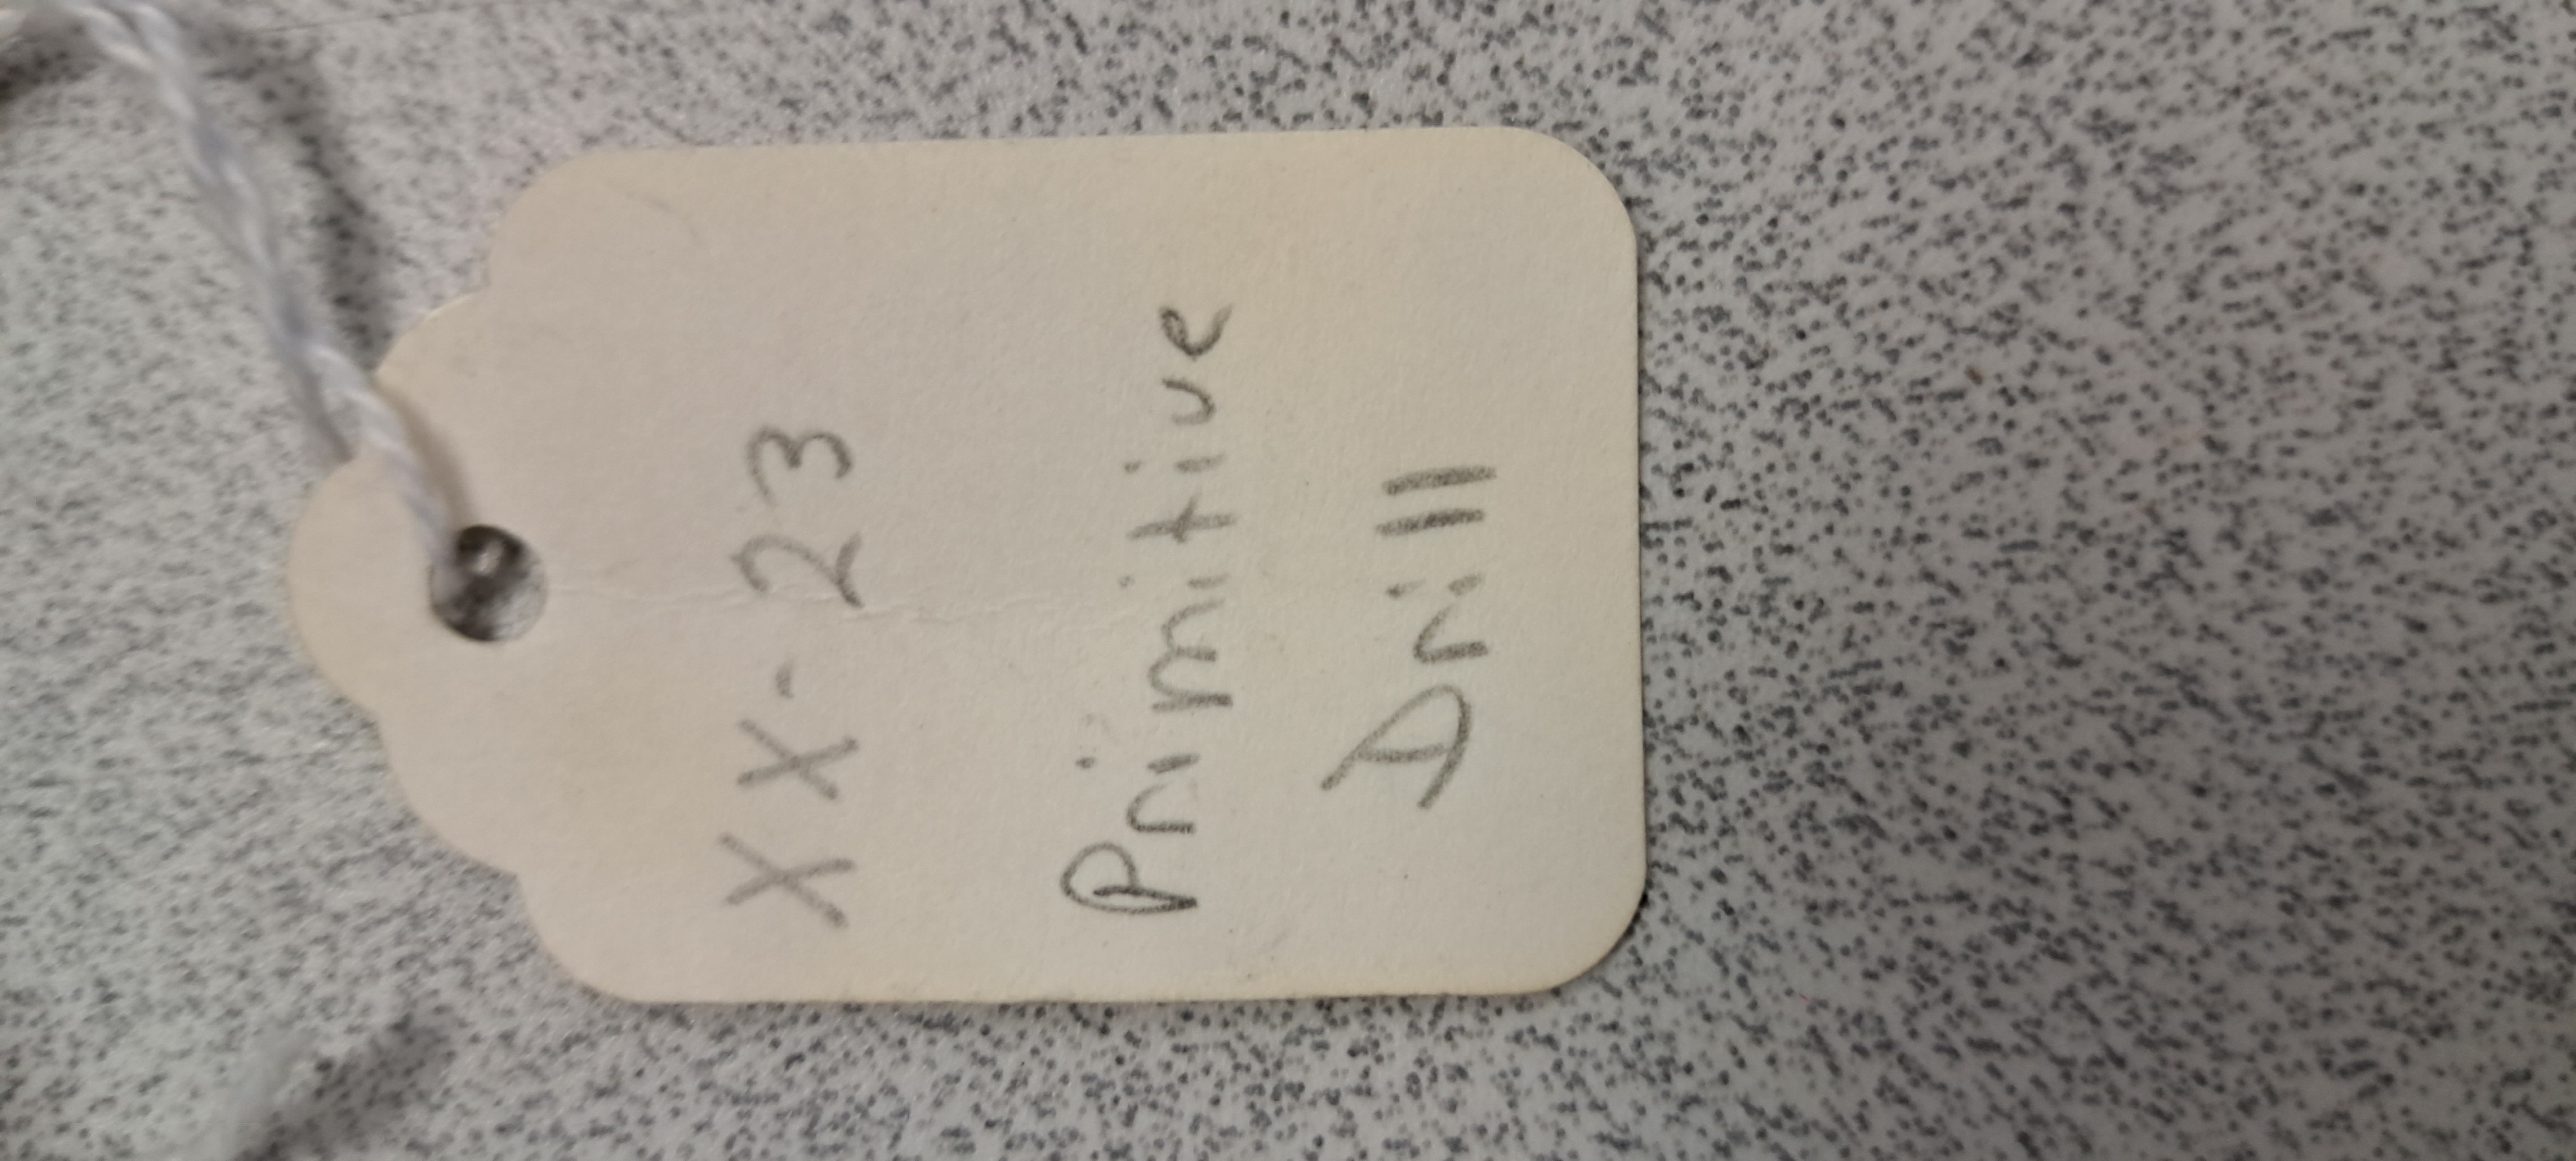 XX-23
Primitive
Drill